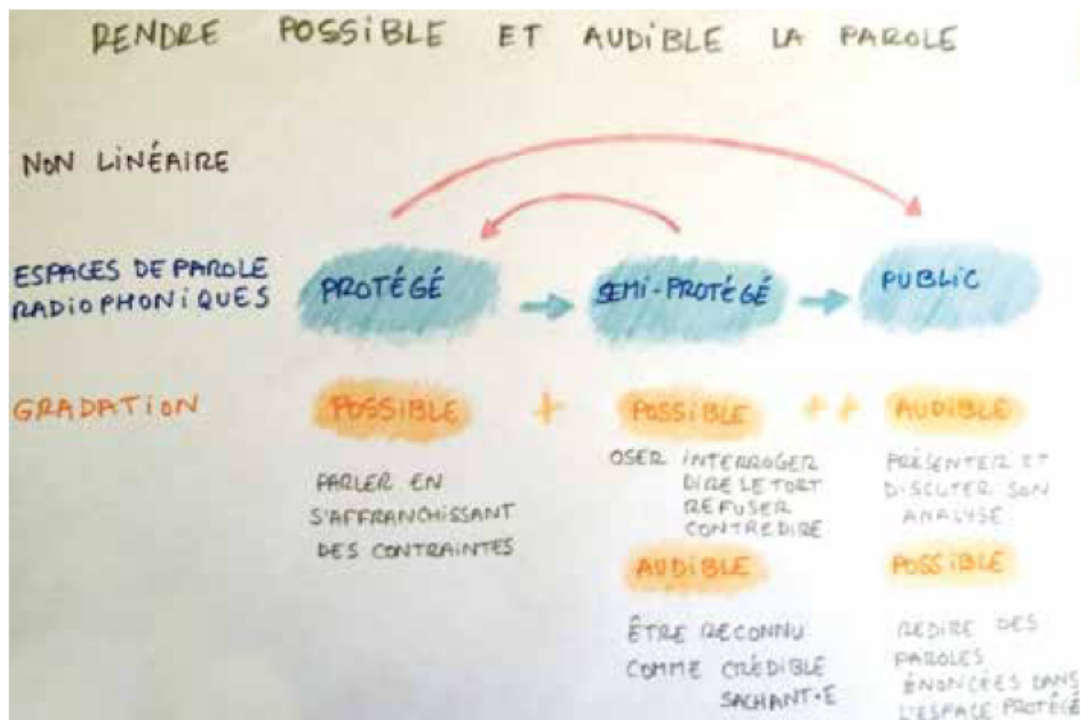 RENDRE POSSIBLE ET AUDIBLE LA PAROLE
NON LINÉAIRE
ESPACES DE PAROLE
RADIOPHONIQUES
PROTÉGÉ
SEMI-PROTÉGÉ
PUBLIC
GRADATION
POSSIBLE
+
POSSIBLE
++
AUDIBLE
PARLER EN
S'AFFRANCHISSANT
DES CONTRAINTES
OSER INTERROGER
DIRE LE TORT
REFUSER
CONTREDIRE
PRÉSENTER ET
DISCUTER SON
ANALYSE
AUDIBLE
ÊTRE RECONNU
COMME CRÉDIBLE
SACHANT·E
POSSIBLE
REDIRE DES
PAROLES
ÉNONCÉES DANS
L'ESPACE PROTÉGÉ